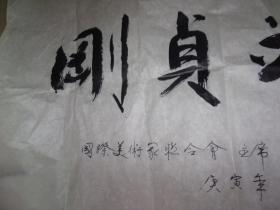 剛貞
國際美術家联合會 主席
庚寅年